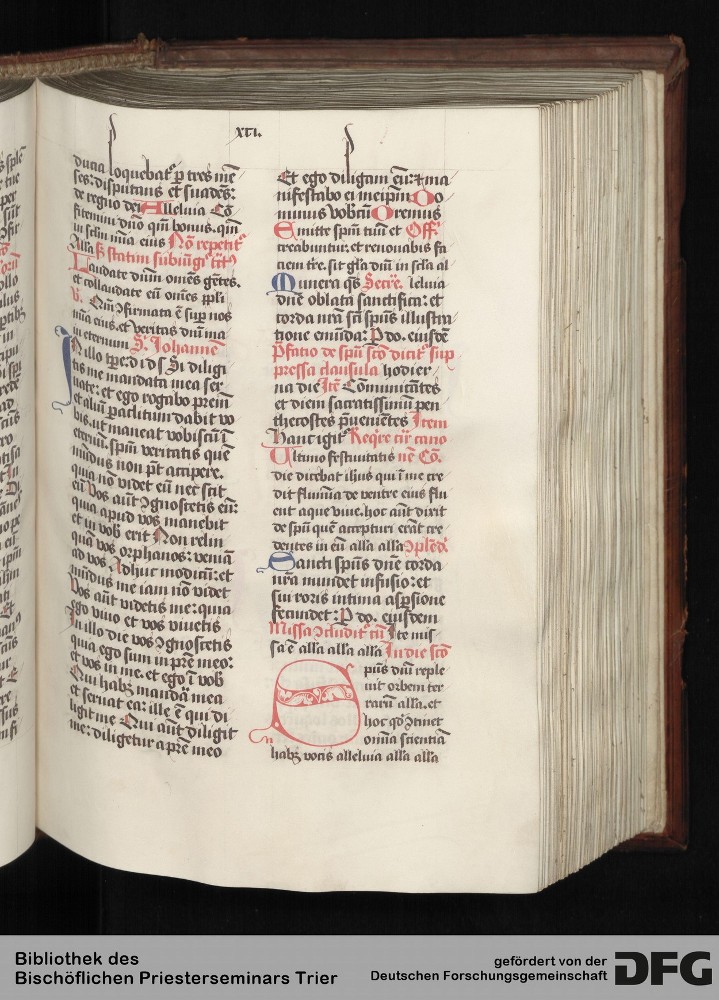 xvi.
ducia loquebat᷑ ꝑ tres mē
ses: disputans et suadēs:
de regno dei Alleluia Cō
fitemini dn̄o qm̄ bonus. qm̄
in sclm̄ mīa eius Nō repetit᷑
Alla
Laudate dn̄m om̄es gētes.
et collaudate eū om̄es ppli
V. Qm̄ ꝯfirmata ē suꝑ nos
mīa eius. et veritas dn̄i ma
in eternum S. Johannē
In illo tꝑe: d i d s Si diligi
tis me mandata mea ser
uate: et ego rogabo prem̄
et aliū paclitum dabit vo
bis. ut maneat vobiscū ī
eternū. spm̄ veritatis quē
mūdus non pt̄ accipere.
quia nō videt eū nec scit
eū Vos aūt ꝯgnoscetis eū:
quia apud vos manebit
et in vob̄ erit Non relin
quā vos orphanos: veniā
ad vos Adhuc modicū: et
mūdus me iam nō videt
Vos aūt videtis me: quia
Ego viuo et vos viuetis
In illo die vos ꝯgnoscetis
quia ego sum in pr̄e meo:
et vos in me. et ego ī vob̄
Qui habꝫ mandā mea
et seruat ea: ille ē qui di
ligit me Qui aūt diligit
me: diligetur a pr̄e meo
Et ego diligam eū: ⁊ ma
nifestabo ei meip̄m Do
minus vobcū Oremus
Emitte spm̄ tuū et Off.
creabuntur. et renouabis fa
ciem tr̄e. sit gl̄a dn̄i in scl̄a al
Munera qs Secrē. leluia
dn̄e oblata sanctifica: et
corda nr̄a sc̄i spūs illustra
tione emūda: P do. eiusdē
Pfatio de spū scō dicit᷑ sup
pressa clausula hodier
na die Itē Cōmunicātes
et diem sacratissimū pen
thecostes ꝑueniētes Item
Hanc igit᷑ Reqr̄e cir cano
Ultimo festiuitatis nē Cō.
die dicebat ihus qui ī me cre
dit flumīa de ventre eius flu
ent aque viue. hoc aūt dixit
de spū quē accepturi erāt cre
dentes in eū alla alla ꝯplēd.
Sancti spūs dn̄e corda
nr̄a mundet infusio: et
sui roris intima asꝑsione
fecundet: P do. eiusdem
Missa ꝯcludit᷑ cū Ite mis
sa ē alla alla alla In die scō
Spūs dn̄i reple
uit orbem ter
rarū alla. et
hoc qd̄ ꝯtinet
omīa scientiā
habꝫ vocis alleluia alla alla
Bibliothek des
Bischöflichen Priesterseminars Trier
gefördert von der
Deutschen Forschungsgemeinschaft
DFG